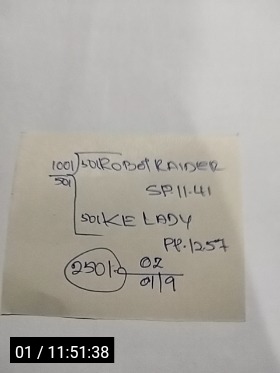 1001 501 ROBOT RAIDER
501 SP.11.41
501 KE LADY
PP.1257
2501- 02
01/9
01 / 11:51:38